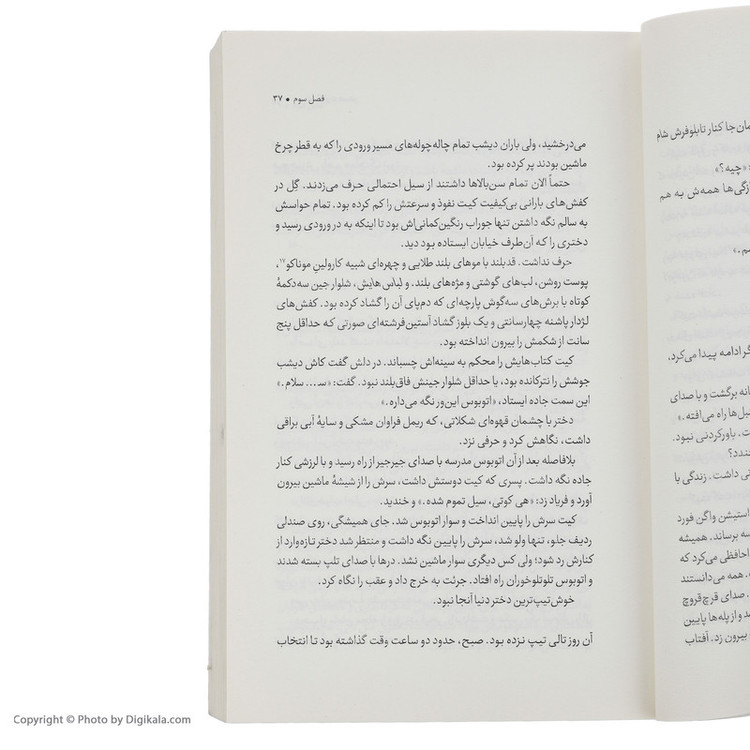 فصل سوم • ۳۷
می‌درخشید، ولی باران دیشب تمام چاله‌چوله‌های مسیر ورودی را که به قطر چرخ
ماشین بودند پر کرده بود.
حتماً الان تمام سن‌بالاها داشتند از سیل احتمالی حرف می‌زدند. گِل در
کفش‌های بارانی بی‌کیفیت کیت نفوذ و سرعتش را کم کرده بود. تمام حواسش
به سالم نگه داشتن تنها جوراب رنگین‌کمانی‌اش بود تا اینکه به در ورودی رسید و
دختری را که آن‌طرف خیابان ایستاده بود دید.
حرف نداشت. قدبلند با موهای بلند طلایی و چهره‌ای شبیه کارولینِ موناکو۱۷،
پوست روشن، لب‌های گوشتی و مژه‌های بلند. و لباس‌هایش، شلوار جین سه‌دکمهٔ
کوتاه با برش‌های سه‌گوش پارچه‌ای که دم‌پای آن را گشاد کرده بود. کفش‌های
لژدار پاشنه چهارسانتی و یک بلوز گشاد آستین‌فرشته‌ای صورتی که حداقل پنج
سانت از شکمش را بیرون انداخته بود.
کیت کتاب‌هایش را محکم به سینه‌اش چسباند. در دلش گفت کاش دیشب
جوشش را نترکانده بود، یا حداقل شلوار جینش فاق‌بلند نبود. گفت: «سـ... سلام.»
این سمت جاده ایستاد، «اتوبوس این‌ور نگه می‌داره.»
دختر با چشمان قهوه‌ای شکلاتی، که ریمل فراوان مشکی و سایهٔ آبی براقی
داشت، نگاهش کرد و حرفی نزد.
بلافاصله بعد از آن اتوبوس مدرسه با صدای جیرجیر از راه رسید و با لرزشی کنار
جاده نگه داشت. پسری که کیت دوستش داشت، سرش را از شیشهٔ ماشین بیرون
آورد و فریاد زد: «هی کوتی، سیل تموم شده.» و خندید.
کیت سرش را پایین انداخت و سوار اتوبوس شد. جای همیشگی، روی صندلی
ردیف جلو، تنها ولو شد، سرش را پایین نگه داشت و منتظر شد دختر تازه‌وارد از
کنارش رد شود؛ ولی کس دیگری سوار ماشین نشد. درها با صدای تلپ بسته شدند
و اتوبوس تلوتلوخوران راه افتاد. جرئت به خرج داد و عقب را نگاه کرد.
خوش‌تیپ‌ترین دختر دنیا آنجا نبود.
آن روز تالی تیپ نزده بود. صبح، حدود دو ساعت وقت گذاشته بود تا انتخاب
مان‌جا کنار تابلوفرش شام
: «چیه؟»
زگی‌ها همه‌ش به هم
م.»
گر ادامه پیدا می‌کرد،
انه برگشت و با صدای
سیل‌ها راه می‌افته.»
ت. باورکردنی نبود.
خندد؟
نی داشت. زندگی با
استیشن واگن فورد
سه برساند. همیشه
احافظی می‌کرد که
ت. همه می‌دانستند
. صدای قرچ‌قروچ
د و از پله‌ها پایین
بیرون زد. آفتاب
Copyright © Photo by Digikala.com